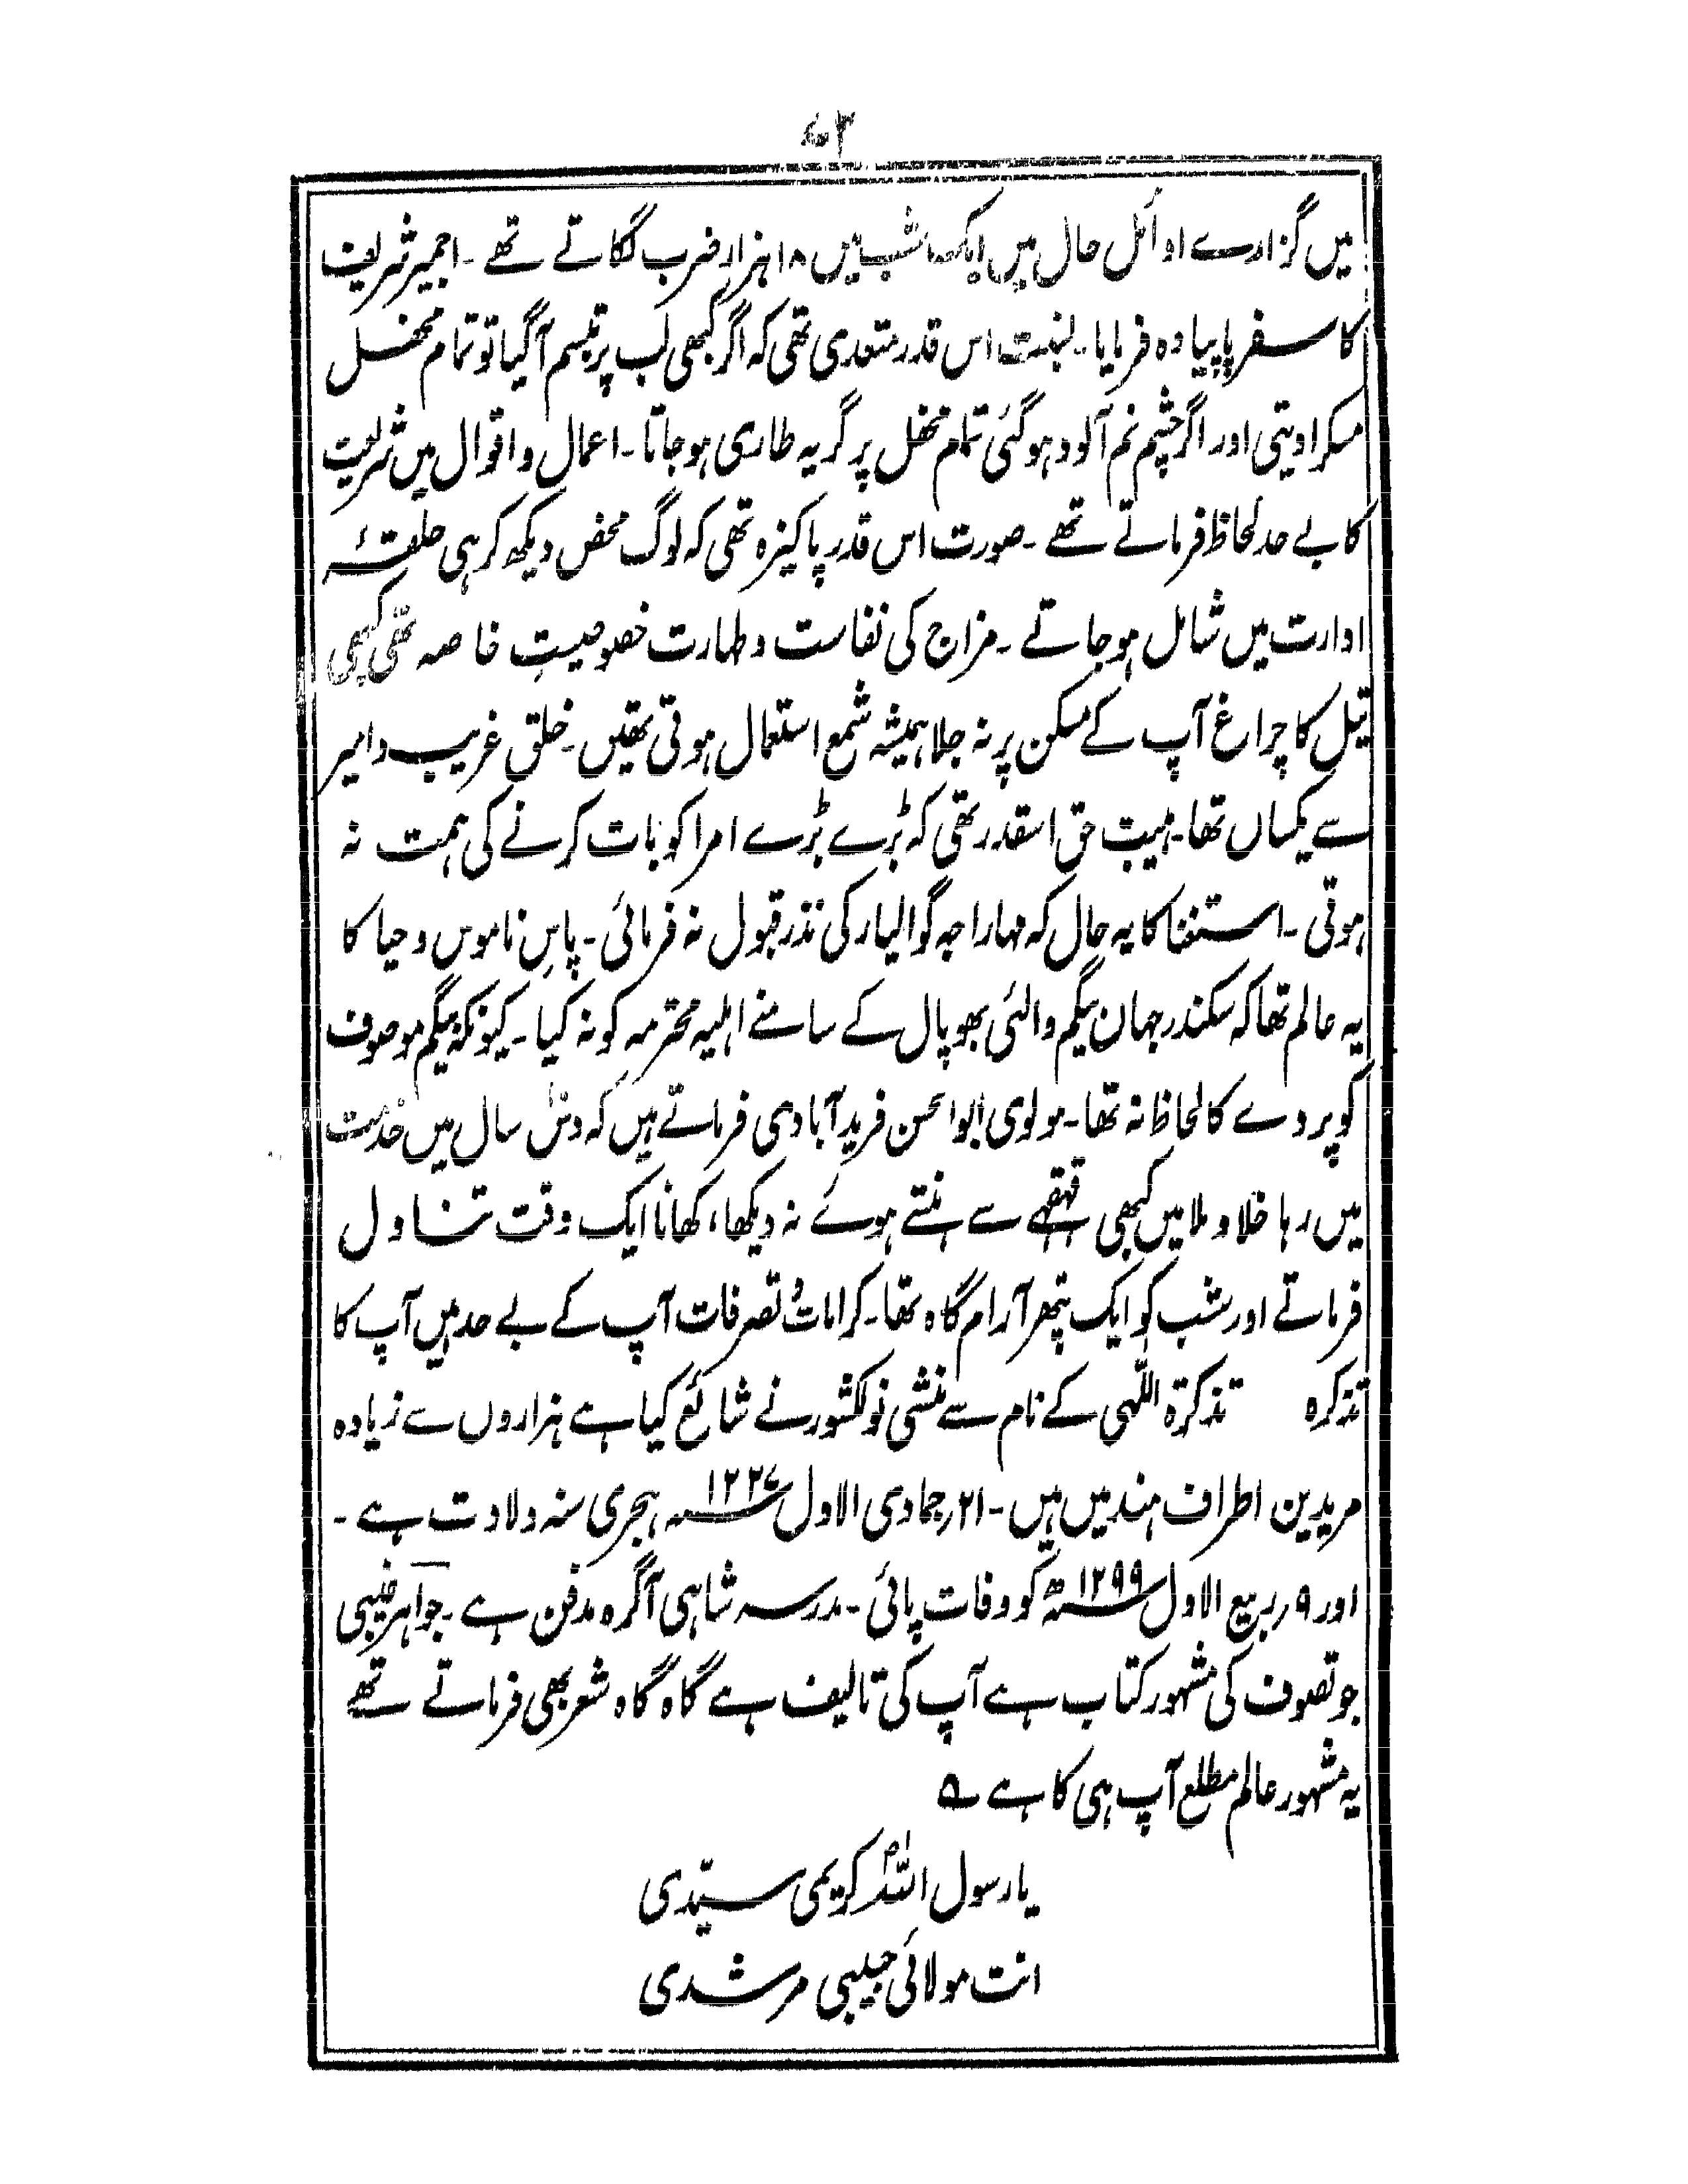 ۷۳
میں گزارے اوائل حال میں ایک شب میں ۱۸ ہزار ضرب لگاتے تھے ۔ اجمیر شریف
کا سفر پاپیادہ فرمایا۔ نسبت اس قدر متعدی تھی کہ اگر کبھی لب پر تبسم آگیا تو تمام محفل
مسکرا دیتی اور اگر چشم نم آلود ہوگئی تمام محفل پر گریہ طاری ہو جاتا۔ اعمال و اقوال میں شریعت
کا بے حد لحاظ فرماتے تھے ۔ صورت اس قدر پاکیزہ تھی کہ لوگ محض دیکھ کر ہی حلقۂ
ادارت میں شامل ہوجاتے ۔ مزاج کی نفاست و طہارت خصوصیتِ خاصہ تھی کبھی
تیل کا چراغ آپ کے مسکن پر نہ جلا ہمیشہ شمع استعمال ہوتی تھیں۔ خلق غریب و امیر
سے یکساں تھا۔ ہیبت حق اسقدر تھی کہ بڑے بڑے امرا کو بات کرنے کی ہمت نہ
ہوتی ۔ استغنا کا یہ حال کہ مہاراجہ گوالیار کی نذر قبول نہ فرمائی۔ پاسِ ناموس و حیا کا
یہ عالم تھا کہ سکندر جہان بیگم والئی بھوپال کے سامنے اہلیہ محترمہ کو نہ کیا۔ کیونکہ بیگم موصوف
کو پردے کا لحاظ نہ تھا۔ مولوی ابوالحسن فریدآبادی فرماتے ہیں کہ دس سال میں خدمت
میں رہا خلا و ملا میں کبھی قہقہے سے ہنستے ہوئے نہ دیکھا، کھانا ایک وقت تناول
فرماتے اور شب کو ایک پتھر آرام گاہ تھا۔ کرامات و تصرفات آپ کے بے حد ہیں آپ کا
تذکرہ تذکرۃ اللّٰہی کے نام سے منشی نولکشور نے شائع کیا ہے ہزاروں سے زیادہ
مریدین اطراف ہند میں ہیں ۔ ۲۱؍ جمادی الاول ۱۲۲۷ ؁ ہجری سنہ ولادت ہے ۔
اور ۹؍ ربیع الاول ۱۲۹۹ ؁ھ کو وفات پائی ۔ مدرسہ شاہی آگرہ مدفن ہے ۔ جواہر غیبی
جو تصوف کی مشہور کتاب ہے آپ کی تالیف ہے گاہ گاہ شعر بھی فرماتے تھے
یہ مشہور عالم مطلع آپ ہی کا ہے ؎
یا رسول اللہؐ کریمی سیّدی
انت مولائی حبیبی مرشدی